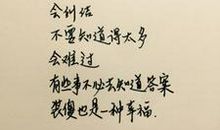 会纠结
不要知道得太多
会难过
有些事不必去知道答案
装傻也是一种幸福.